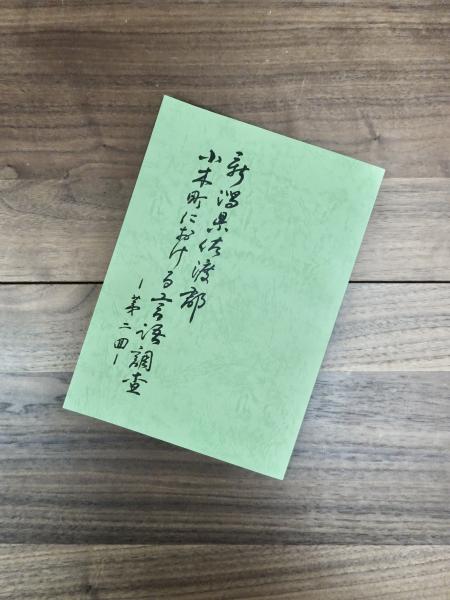 新潟県佐渡郡
小木町における言語調査
―第二回―